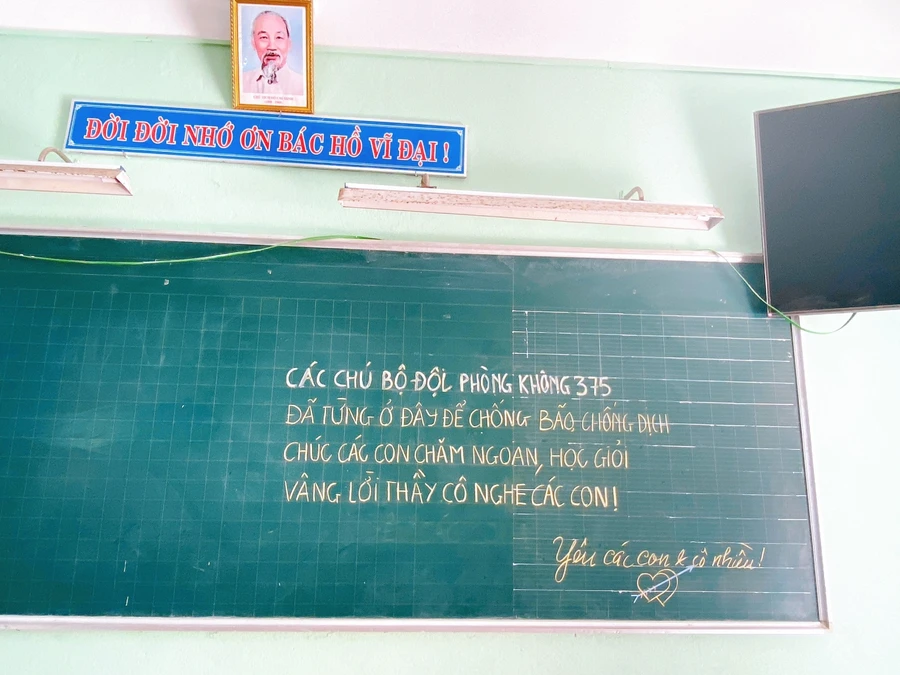 ĐỜI ĐỜI NHỚ ƠN BÁC HỒ VĨ ĐẠI !
CÁC CHÚ BỘ ĐỘI PHÒNG KHÔNG 375
ĐÃ TỪNG Ở ĐÂY ĐỂ CHỐNG BÃO, CHỐNG DỊCH
CHÚC CÁC CON CHĂM NGOAN, HỌC GIỎI
VÂNG LỜI THẦY CÔ NGHE CÁC CON!
Yêu các con & cô nhiều!